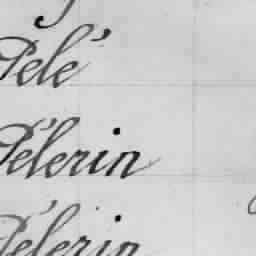 Pelé
Pélerin
Pélerin